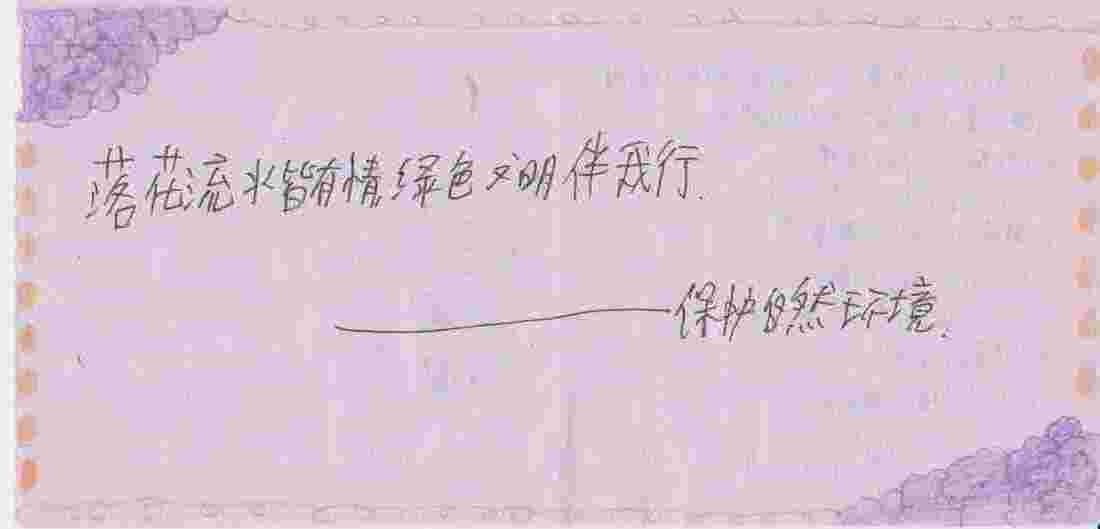 落花流水皆有情绿色文明伴我行.
——保护自然环境.